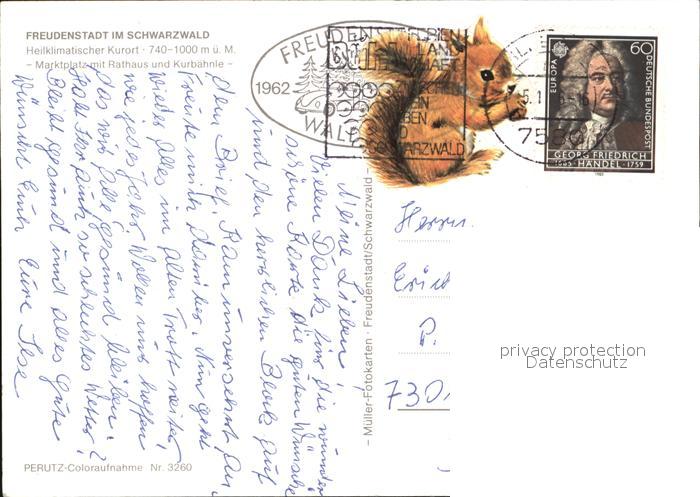 FREUDENSTADT IM SCHWARZWALD
Heilklimatischer Kurort · 740-1000 m ü. M.
- Marktplatz mit Rathaus und Kurbähnle -
FREUDENST
1962
WALD
FERIEN
LAND
SCHWARZWALD
75
60
EUROPA
DEUTSCHE BUNDESPOST
GEORG FRIEDRICH
HÄNDEL · 1759
1685
Meine Lieben!
Vielen Dank für die wunder
schöne Karte die guten Wünsche
und den herrlichen Blick auf
dem Brief. Kam unversehrt an.
Freute mich darüber. Nun geht
wieder alles im alten Trott weiter,
wie jedes Jahr. Wollen wir hoffen
das wir alle gesund bleiben.
Habt Ihr auch so schlechtes Wetter?
Bleibt gesund und alles Gute
wünscht Euch Eure Ilse
Herrn
Erich
P.
730
- Müller-Fotokarten · Freudenstadt/Schwarzwald -
PERUTZ-Coloraufnahme Nr. 3260
privacy protection
Datenschutz